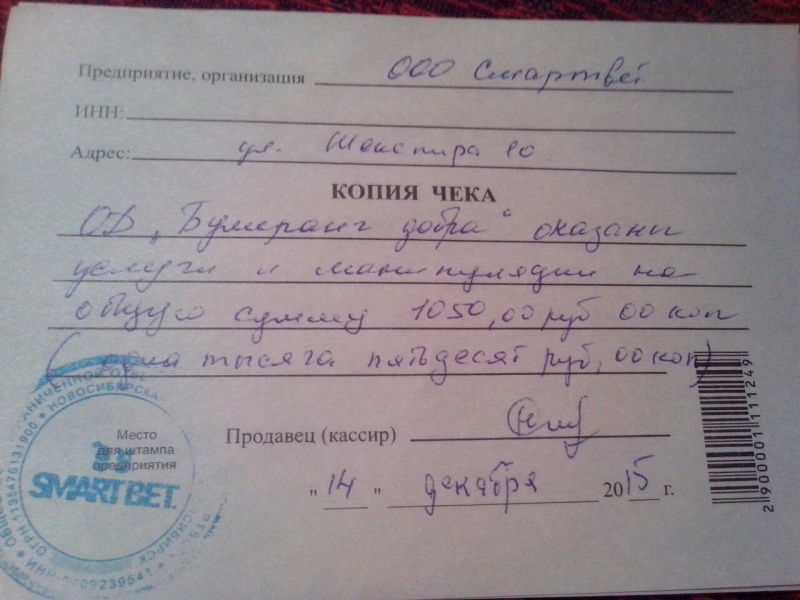 Предприятие, организация ООО Смартвет
ИНН:
Адрес: ул. Шекспира 10
КОПИЯ ЧЕКА
ОД "Бумеранг добра" оказаны
услуги и манипуляции на
общую сумму 1050,00 руб 00 коп
(одна тысяча пятьдесят руб, 00 коп)
Место
для штампа
предприятия
SMARTBET
НОВОСИБИРСК
Продавец (кассир)
"14" декабря 2015 г.
2 900001 111249